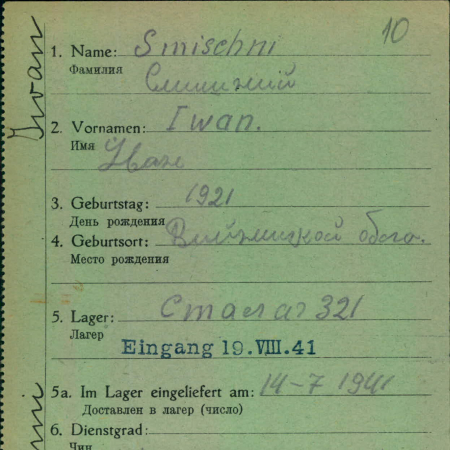 10
Iwan
1. Name: Smischni
Фамилия
Смишний
2. Vornamen: Iwan.
Имя
Иван
3. Geburtstag: 1921
День рождения
4. Geburtsort: Винницкой обла.
Место рождения
5. Lager: Сталаг 321
Лагер
Eingang 19. VIII. 41
5a. Im Lager eingeliefert am: 14-7 1941
Доставлен в лагер (число)
6. Dienstgrad:
Чин